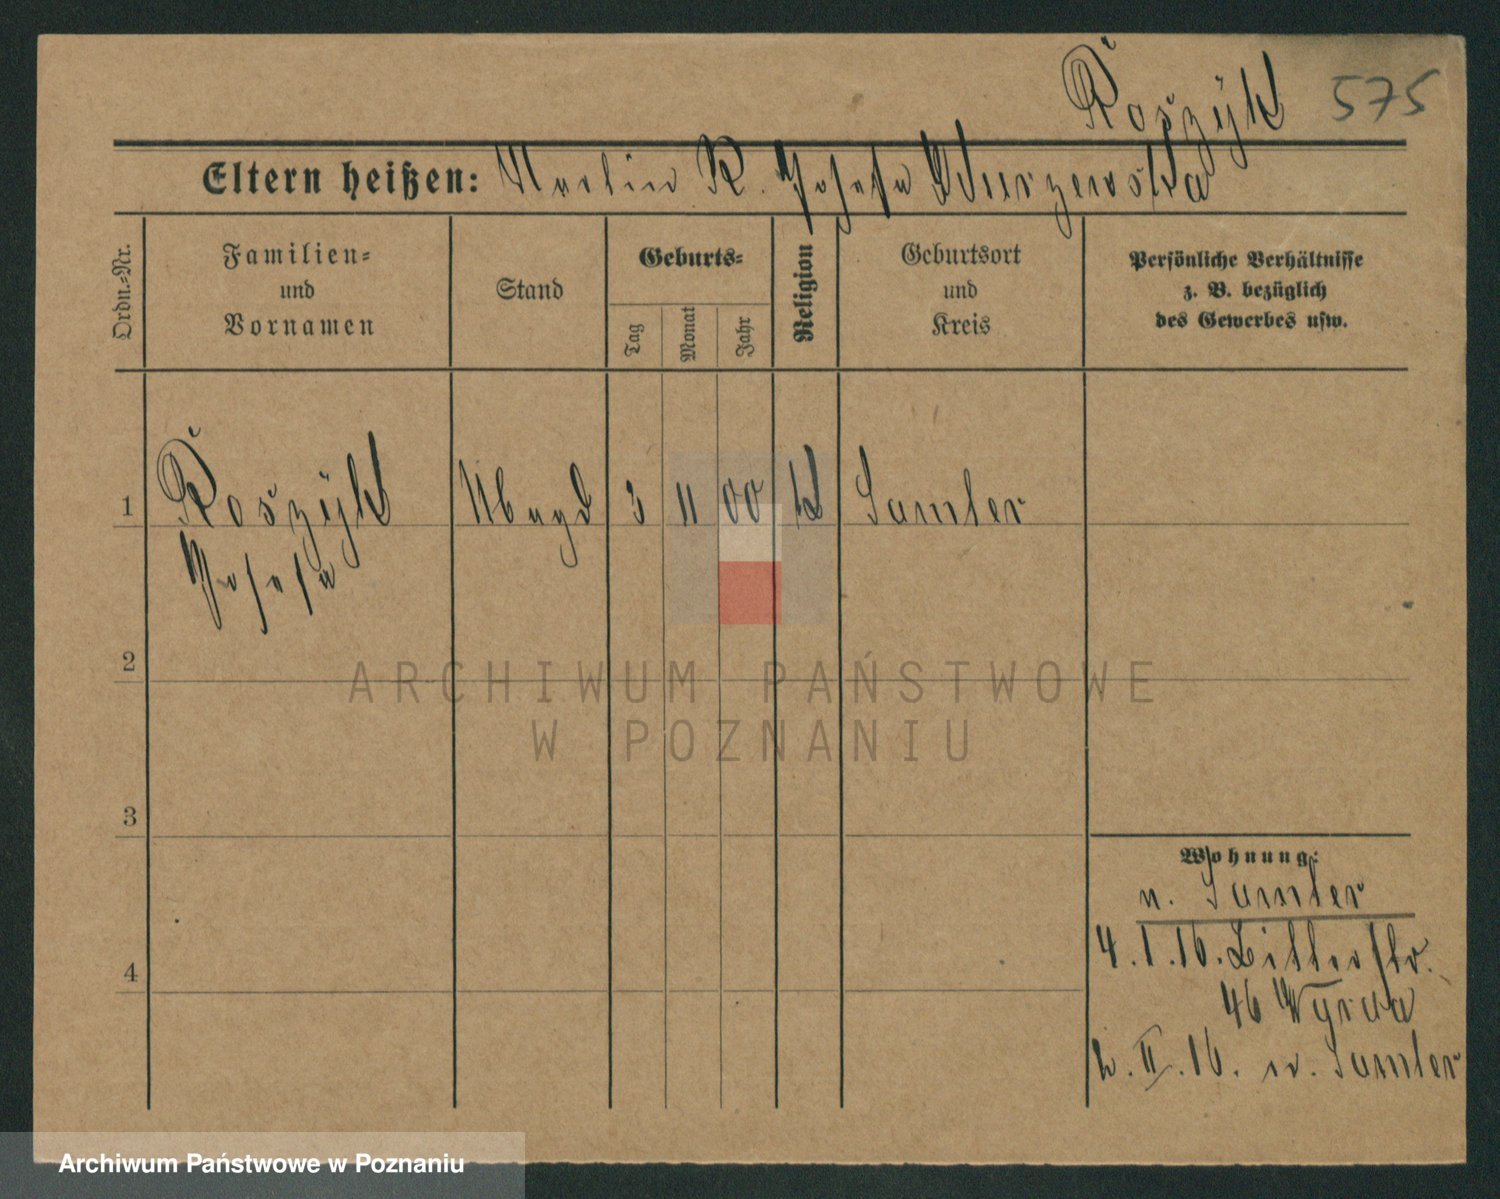 Koszyk 575
Eltern heißen: Martin K. Josefa Wurzewska
Ordn.-Nr.
Familien-
und
Vornamen
Stand
Geburts-
Tag
Monat
Jahr
Religion
Geburtsort
und
Kreis
Persönliche Verhältnisse
z. B. bezüglich
des Gewerbes usw.
1 Koszyk Magd 3 11 00 k Samter
Josefa
2
3
4
Wohnung:
n. Samter
4.1.16. Bitterstr.
46 Wyrwa
2.II.16. n. Samter
ARCHIWUM PAŃSTWOWE
W POZNANIU
Archiwum Państwowe w Poznaniu